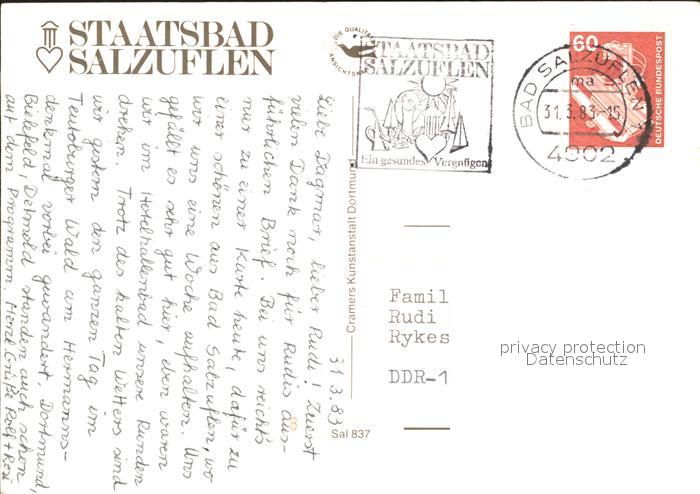 STAATSBAD
SALZUFLEN
DIE QUALITÄTS
ANSICHTSK
STAATSBAD
SALZUFLEN
Ein gesundes Vergnügen
BAD SALZUFLEN 1
ma
31.3.83-15
4902
60
DEUTSCHE BUNDESPOST
31.3.83
Liebe Dagmar, lieber Rudi! Zuerst
vielen Dank noch für Rudis aus-
führlichen Brief. Bei uns reicht's
nur zu einer Karte heute, dafür zu
einer schönen aus Bad Salzuflen, wo
wir uns eine Woche aufhalten. Uns
gefällt es sehr gut hier, eben waren
wir im Hotelhallenbad unsere Runden
drehen. Trotz des kalten Wetters sind
wir gestern den ganzen Tag im
Teutoburger Wald am Hermanns-
denkmal vorbei gewandert. Dortmund,
Bielefeld, Detmold standen auch schon
auf dem Programm. Herzl. Grüße Rolf + Rosi
Cramers Kunstanstalt Dortmund
Sal 837
Famil
Rudi
Rykes
DDR-1
privacy protection
Datenschutz